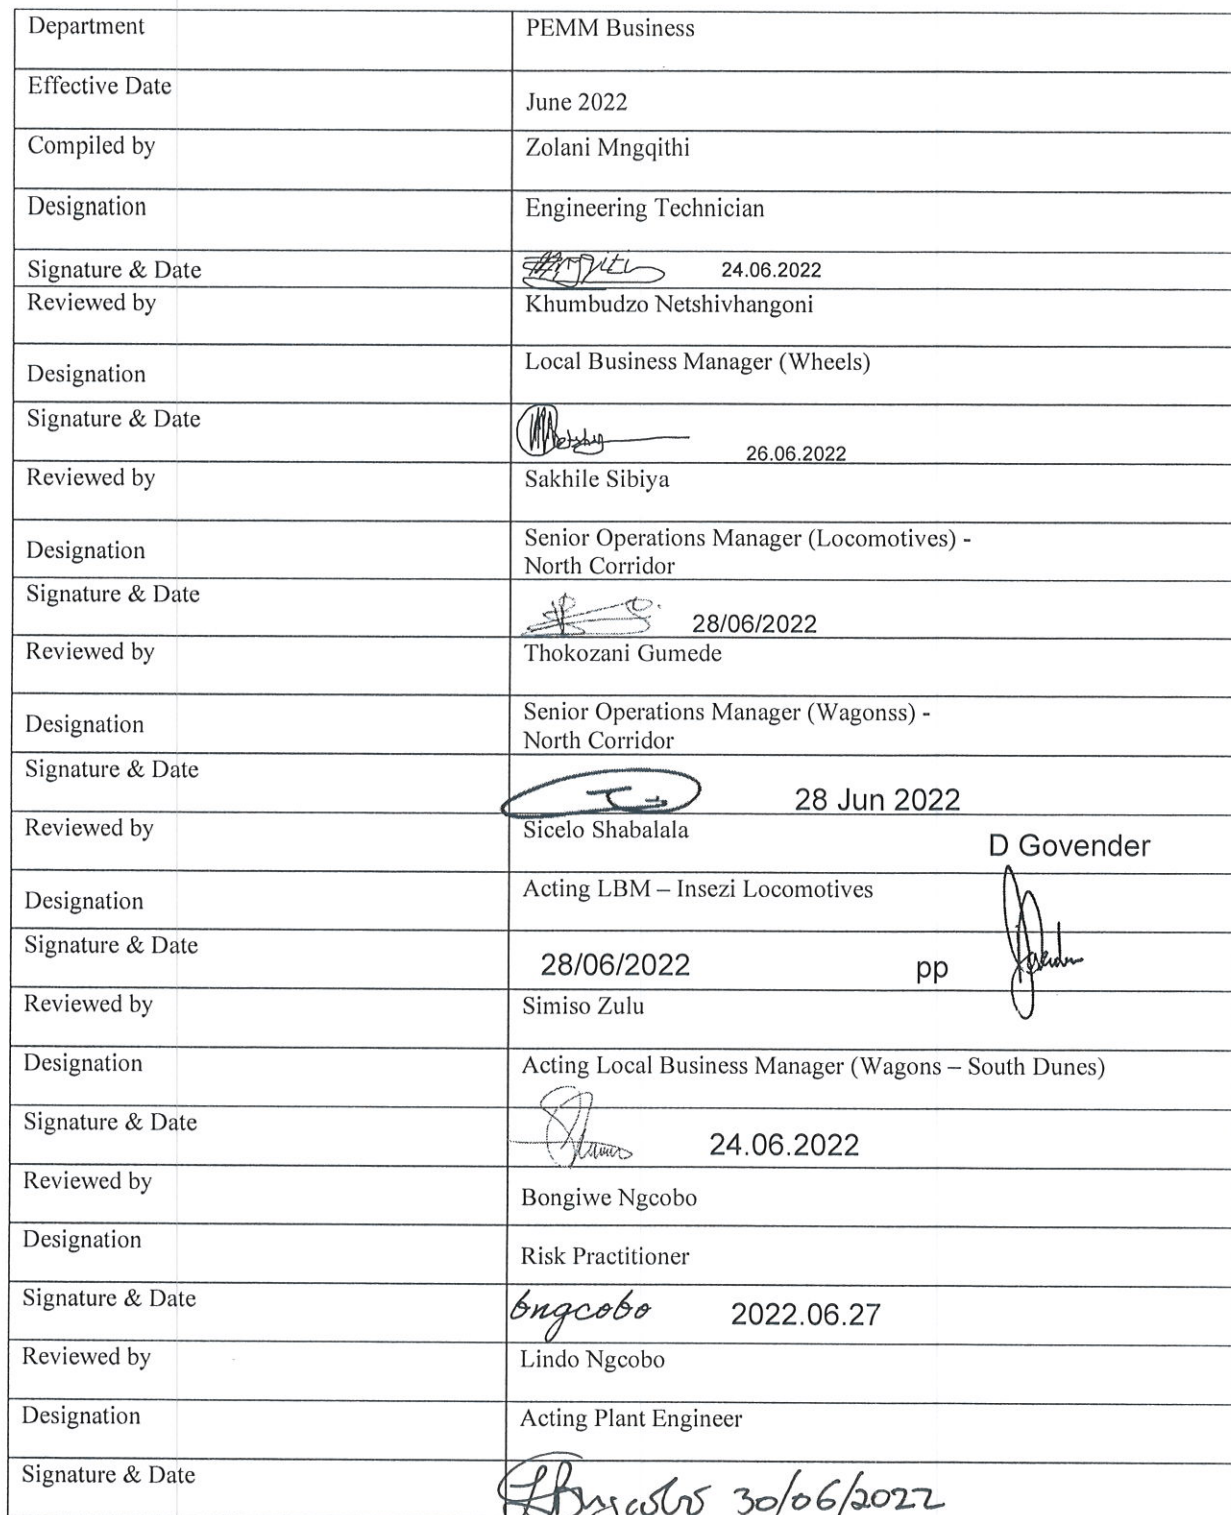 Department PEMM Business
Effective Date June 2022
Compiled by Zolani Mngqithi
Designation Engineering Technician
Signature & Date 24.06.2022
Reviewed by Khumbudzo Netshivhangoni
Designation Local Business Manager (Wheels)
Signature & Date 26.06.2022
Reviewed by Sakhile Sibiya
Designation Senior Operations Manager (Locomotives) -
North Corridor
Signature & Date 28/06/2022
Reviewed by Thokozani Gumede
Designation Senior Operations Manager (Wagonss) -
North Corridor
Signature & Date 28 Jun 2022
Reviewed by Sicelo Shabalala
D Govender
Designation Acting LBM – Insezi Locomotives
Signature & Date 28/06/2022 pp
Reviewed by Simiso Zulu
Designation Acting Local Business Manager (Wagons – South Dunes)
Signature & Date 24.06.2022
Reviewed by Bongiwe Ngcobo
Designation Risk Practitioner
Signature & Date bngcobo 2022.06.27
Reviewed by Lindo Ngcobo
Designation Acting Plant Engineer
Signature & Date 30/06/2022